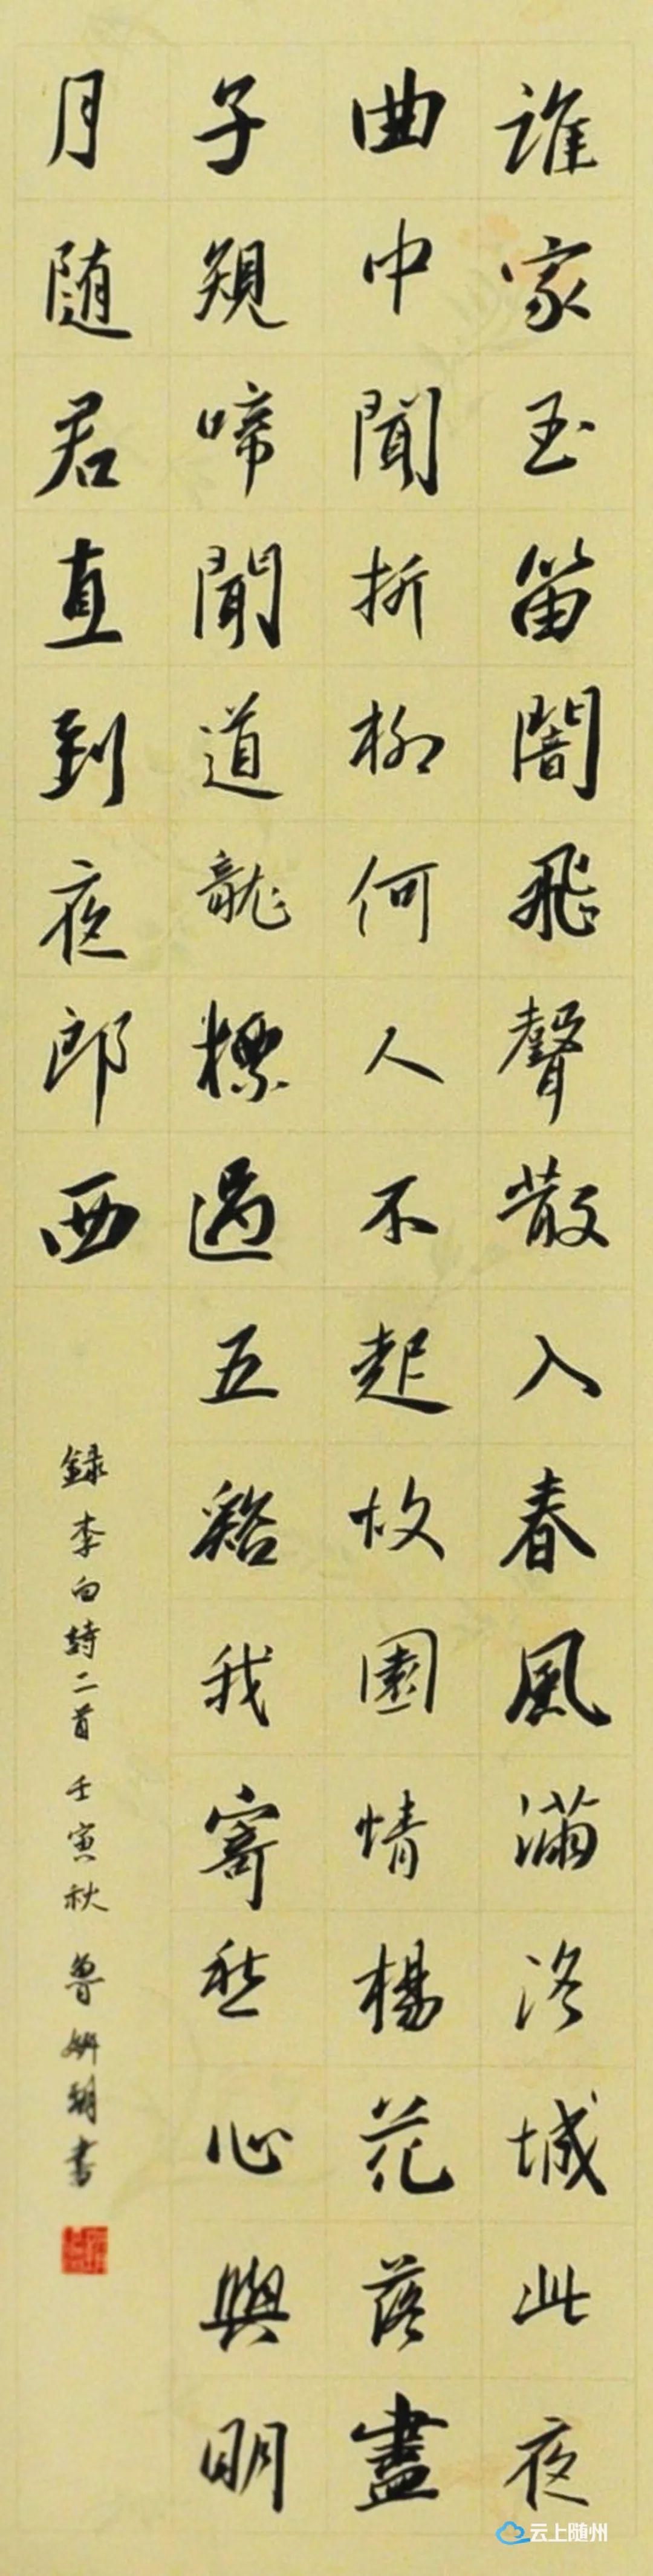 誰家玉笛闇飛聲散入春風滿洛城此夜
曲中聞折柳何人不起故園情楊花落盡
子規啼聞道龍標過五谿我寄愁心與明
月随君直到夜郎西
録李白詩二首壬寅秋魯妍朝書
云上随州